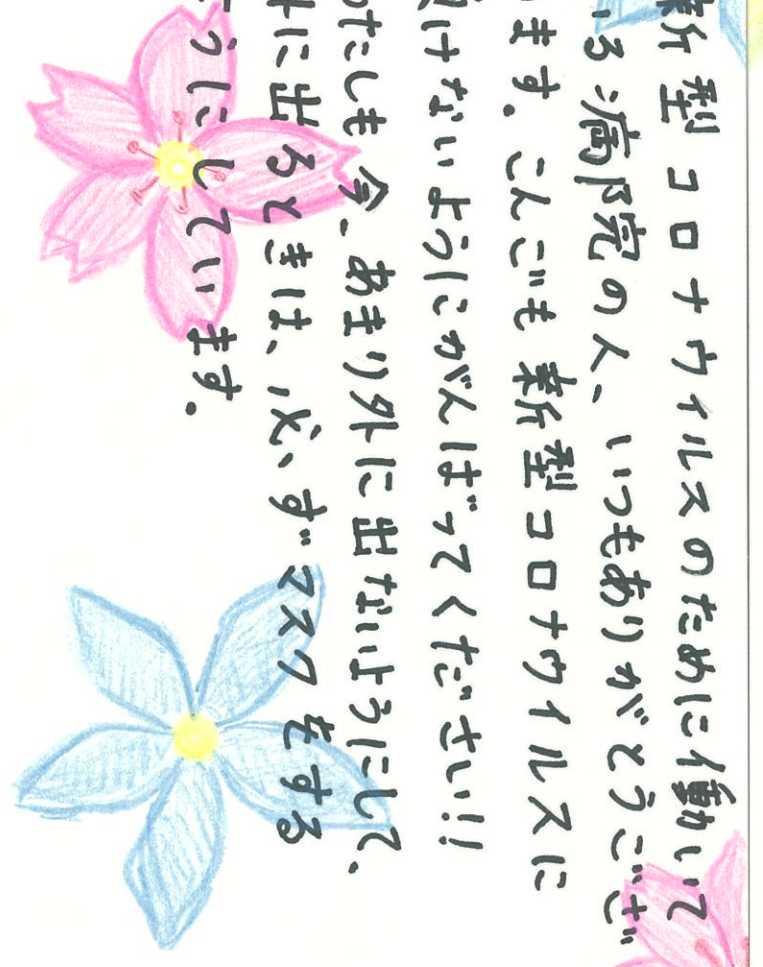 新型コロナウィルスのために働いて
いる病院の人、いつもありがとうござ
います。こんごも新型コロナウイルスに
負けないようにがんばってください!!
わたしも今、あまり外に出ないようにして、
外に出るときは、必ずマスクをする
ようにしています。